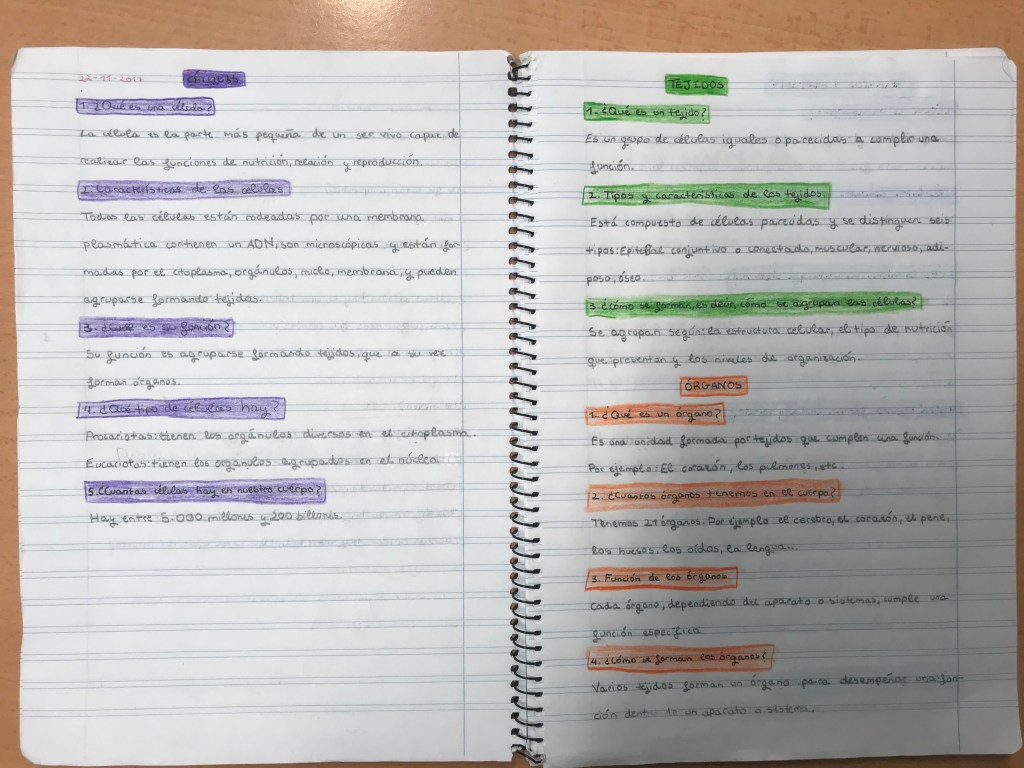 22-11-2017
CÉLULAS
1. ¿Qué es una célula?
La célula es la parte más pequeña de un ser vivo capaz de
realizar las funciones de nutrición, relación y reproducción.
2. Características de las células
Todas las células están rodeadas por una membrana
plasmática contienen un ADN, son microscópicas y están for-
madas por el citoplasma, orgánulos, núcleo, membrana, y pueden
agruparse formando tejidos.
3. ¿Cuál es su función?
Su función es agruparse formando tejidos, que a su vez
forman órganos.
4. ¿Qué tipo de células hay?
Procariotas: tienen los orgánulos diversos en el citoplasma.
Eucariotas: tienen los organulos agrupados en el núcleo
5. ¿Cuantas células hay en nuestro cuerpo?
Hay entre 5.000 millones y 200 billones
TEJIDOS
1. ¿Qué es un tejido?
Es un grupo de células iguales o parecidas a cumplir una
función.
2. Tipos y características de los tejidos.
Está compuesto de células parecidas y se distinguen seis
tipos: Epitelial conjuntivo o conectado, muscular, nervioso, adi-
poso, óseo.
3. ¿Cómo se forman, es decir, cómo se agrupan las células?
Se agrupan según: la estructura celular, el tipo de nutrición
que presentan y los niveles de organización.
ÓRGANOS
1. ¿Qué es un órgano?
Es una unidad formada por tejidos que cumplen una función.
Por ejemplo: El corazón, los pulmones, etc.
2. ¿Cuantos órganos tenemos en el cuerpo?
Tenemos órganos. Por ejemplo: el cerebro, el corazón, el pene,
los huesos, los oídos, la lengua...
3. Función de los órganos
Cada órgano, dependiendo del aparato o sistemas, cumple una
función específica
4. ¿Cómo se forman los órganos?
Varios tejidos forman un órgano para desempeñar una fun-
ción dentro de un aparato o sistema.